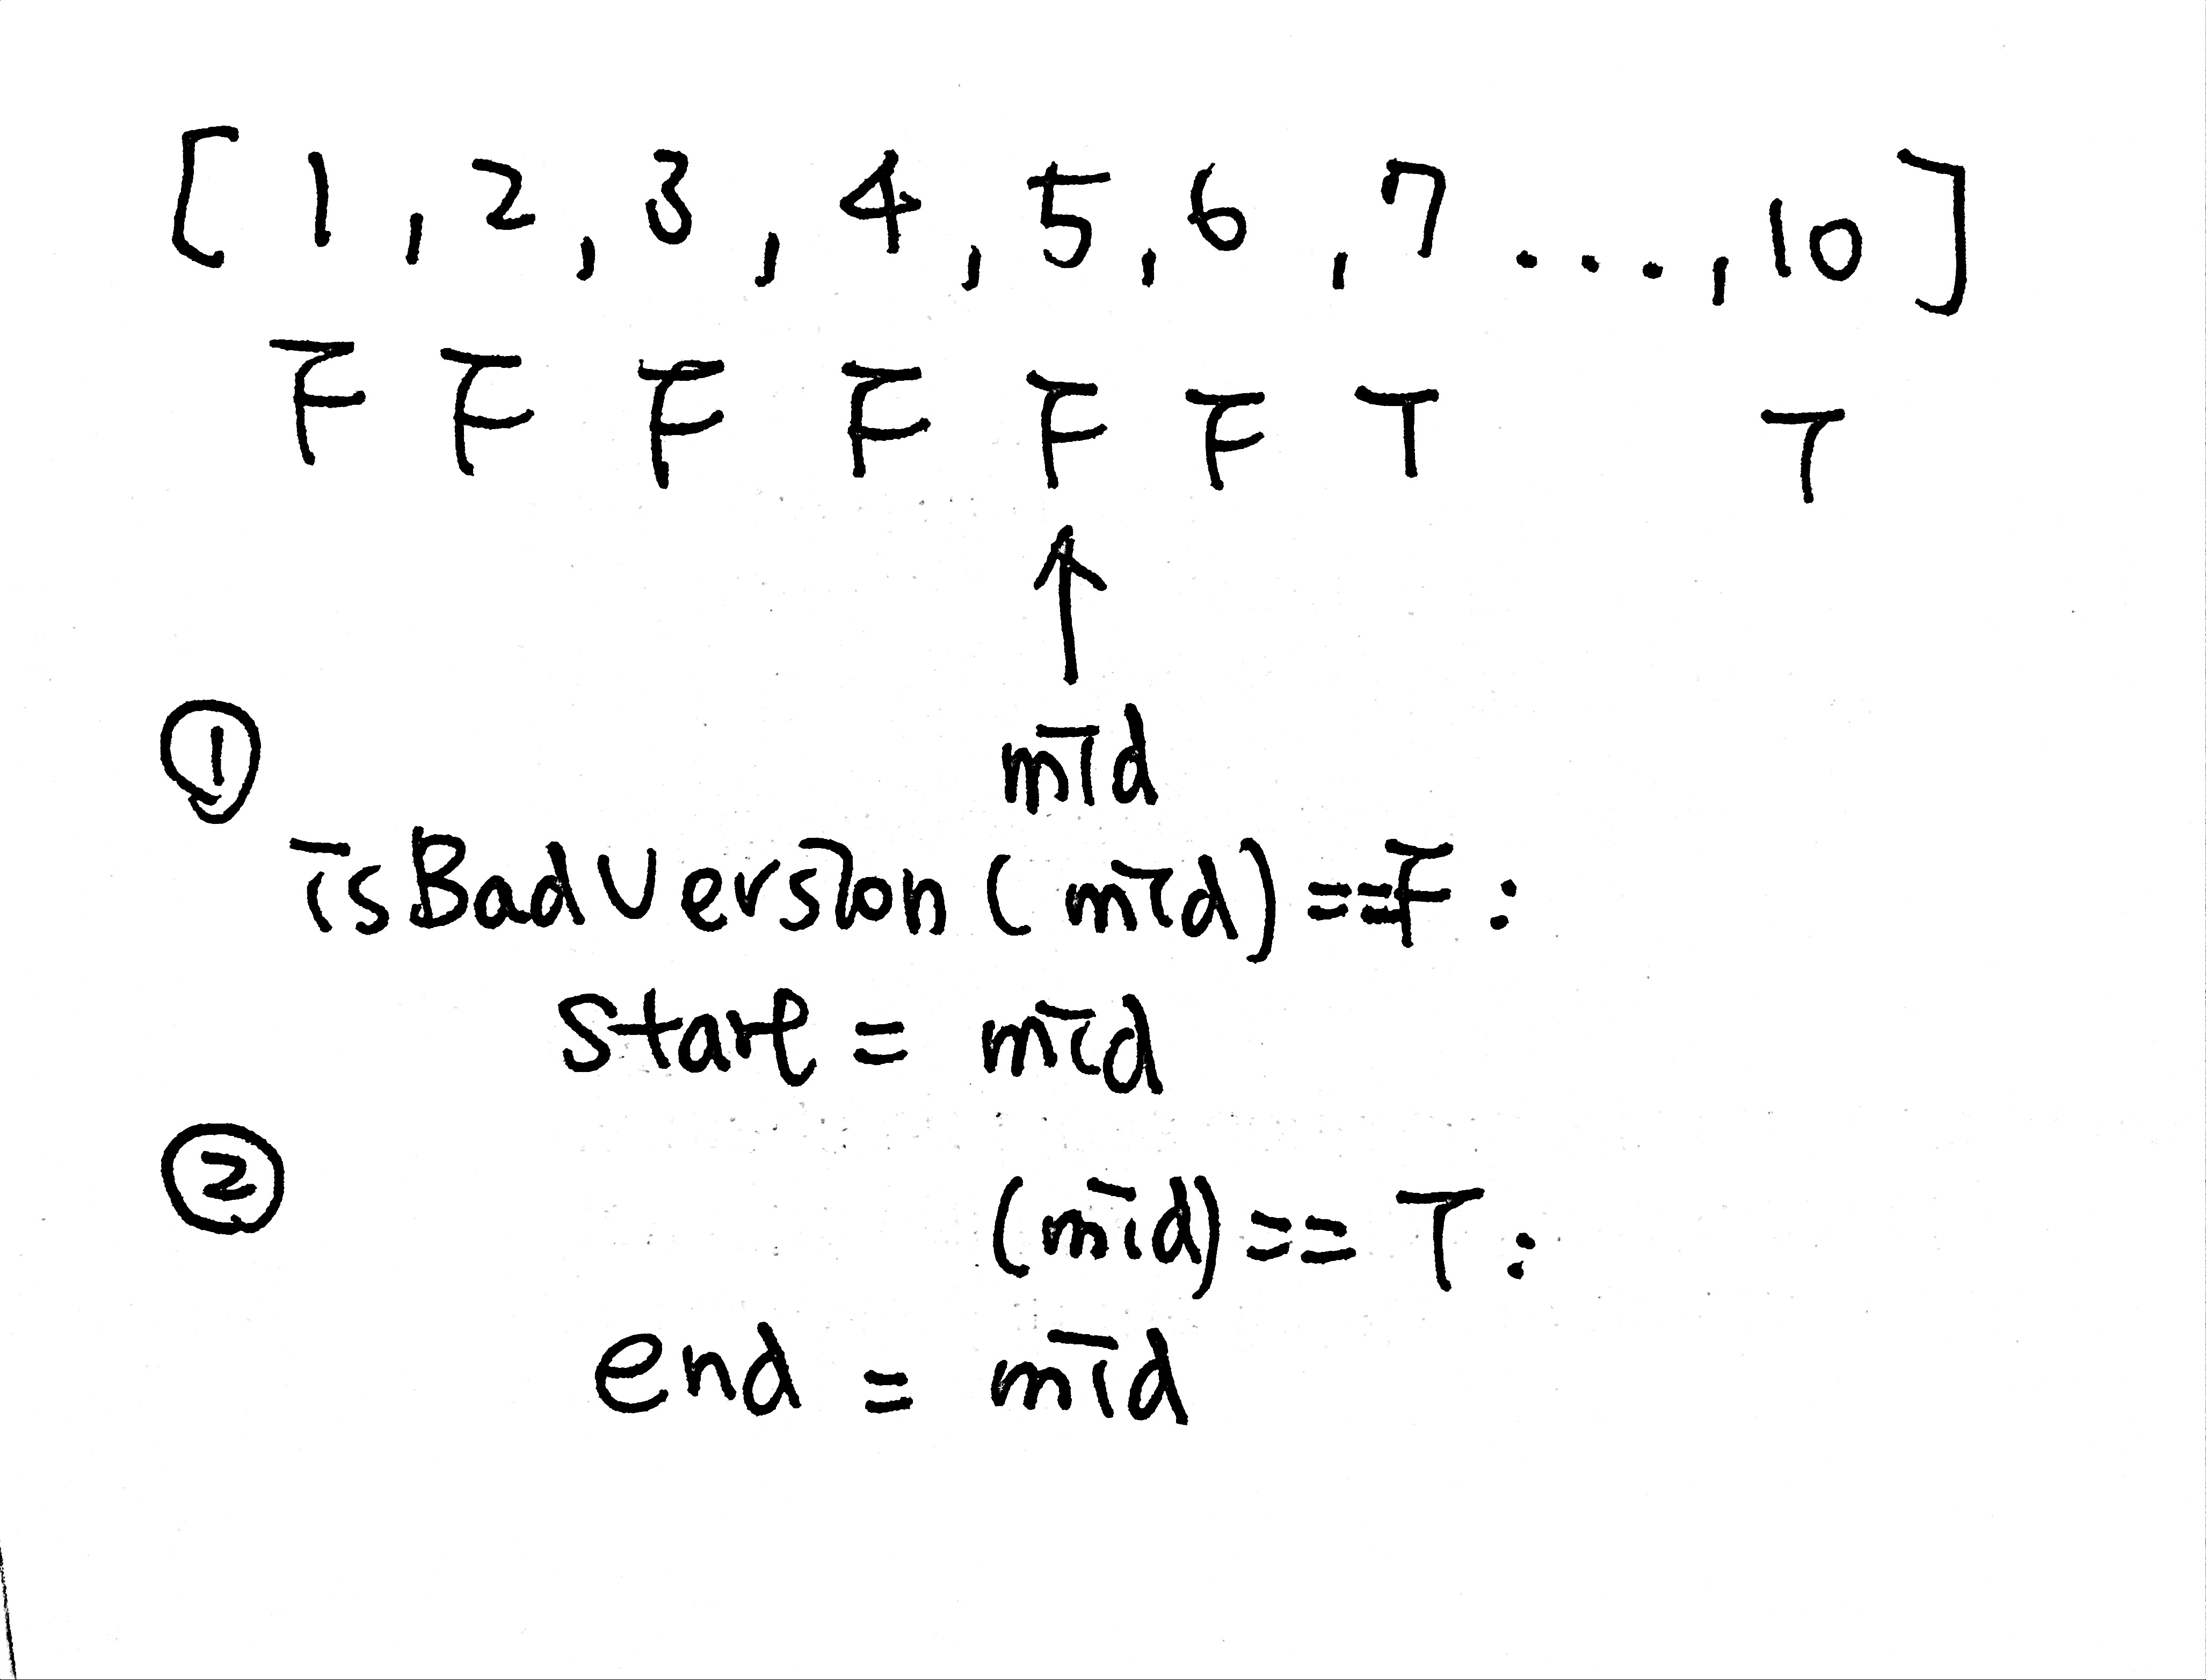 [ 1 , 2 , 3 , 4 , 5 , 6 , 7 ... , 10 ]
F F F F F F T T
↑
①
mid
isBadVersion ( mid ) == F :
start = mid
②
(mid) == T :
end = mid